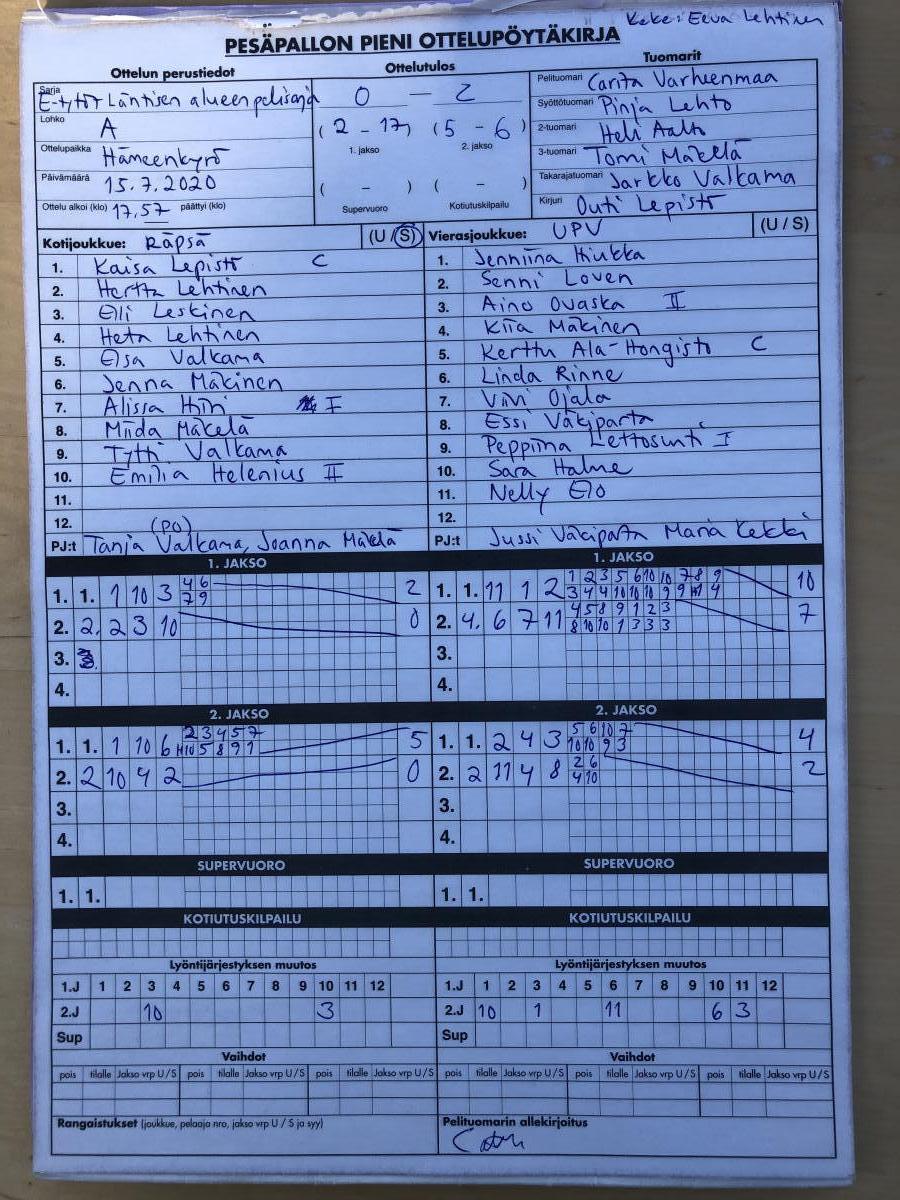 Keke: Eeva Lehtinen
PESÄPALLON PIENI OTTELUPÖYTÄKIRJA
Ottelun perustiedot
Ottelutulos
Tuomarit
Sarja E-tytöt Läntisen alueen pelisarja
Lohko A
Ottelupaikka Hämeenkyrö
Päivämäärä 15.7.2020
Ottelu alkoi (klo) 17.57 päättyi (klo)
0 – 2
(2 – 17) (5 – 6)
1. jakso 2. jakso
( – ) ( – )
Supervuoro Kotiutuskilpailu
Pelituomari Carita Varheenmaa
Syöttötuomari Pinja Lehto
2-tuomari Heli Aalto
3-tuomari Tomi Mäkelä
Takarajatuomari Jarkko Valkama
Kirjuri Outi Lepistö
Kotijoukkue: Räpsä (U / S)
1. Kaisa Lepistö C
2. Hertta Lehtinen
3. Elli Leskinen
4. Heta Lehtinen
5. Elsa Valkama
6. Jenna Mäkinen
7. Alissa Hiiri I
8. Miida Mäkelä
9. Tytti Valkama
10. Emilia Helenius II
11.
12.
(PO)
PJ:t Tanja Valkama, Joanna Mäkelä
Vierasjoukkue: UPV (U / S)
1. Jenniina Hiukka
2. Senni Loven
3. Aino Ovaska II
4. Kiia Mäkinen
5. Kerttu Ala-Hongisto C
6. Linda Rinne
7. Viivi Ojala
8. Essi Väkiparta
9. Peppiina Lettosunti I
10. Sara Halme
11. Nelly Elo
12.
PJ:t Jussi Väkiparta Maria Kekki
1. JAKSO
1. 1. 1 10 3 4 6 2
7 9
2. 2. 2 3 10 0
3.
4.
1. JAKSO
1. 1. 11 1 2 1 2 3 5 6 10 10 7 8 9 10
3 4 4 10 10 10 9 9 4
2. 4. 6 7 11 4 5 8 9 1 2 3 7
8 10 10 1 3 3 3
3.
4.
2. JAKSO
1. 1. 1 10 6 2 3 4 5 7 5
10 5 8 9 1
2. 2 10 4 2 0
3.
4.
2. JAKSO
1. 1. 2 4 3 5 6 10 7 4
10 10 9 3
2. 2 11 4 8 2 6 2
4 10
3.
4.
SUPERVUORO
1. 1.
SUPERVUORO
1. 1.
KOTIUTUSKILPAILU
KOTIUTUSKILPAILU
Lyöntijärjestyksen muutos
1.J 1 2 3 4 5 6 7 8 9 10 11 12
2.J 10 3
Sup
Lyöntijärjestyksen muutos
1.J 1 2 3 4 5 6 7 8 9 10 11 12
2.J 10 1 11 6 3
Sup
Vaihdot
pois tilalle Jakso vrp U/S pois tilalle Jakso vrp U/S pois tilalle Jakso vrp U/S
Vaihdot
pois tilalle Jakso vrp U/S pois tilalle Jakso vrp U/S pois tilalle Jakso vrp U/S
Rangaistukset (joukkue, pelaaja nro, jakso vrp U / S ja syy)
Pelituomarin allekirjoitus